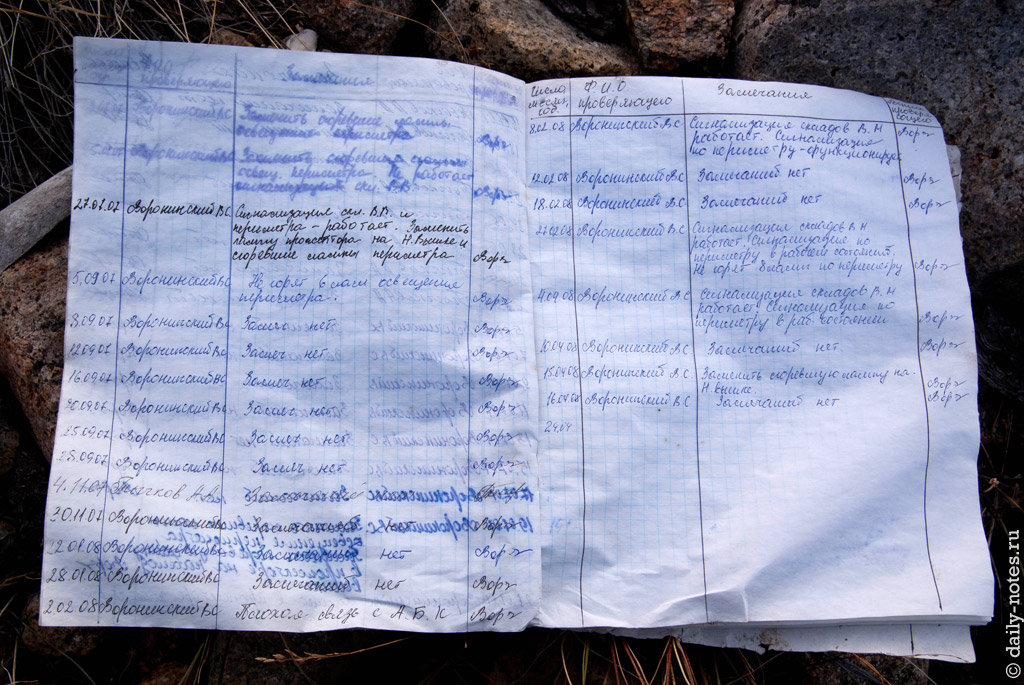 Заменить
освещения периметра
Заменить сгоревшие
освещ. периметра. Не работает
сигнализация скл. В.В.
27.07.07 Воронинский ВС Сигнализация скл. В.В. и
периметра - работает. Заменить
лампу прожектора на Н.Вышке и
сгоревшие лампы периметра Вор
5.09.07 Воронинский ВС Не горят 6 ламп освещение
периметра. Вор
8.09.07 Воронинский ВС Замеч нет Вор
12.09.07 Воронинский ВС Замеч нет Вор
16.09.07 Воронинский ВС Замеч нет Вор
20.09.07 Воронинский ВС Замеч нет Вор
25.09.07 Воронинский ВС Замеч нет Вор
28.09.07 Воронинский ВС Замеч нет Вор
4.11.07
30.11.07 Воронинский ВС Замечаний нет Вор
22.01.08 Воронинский ВС Замечаний нет Вор
28.01.08 Воронинский ВС Замечаний нет Вор
2 02 08 Воронинский ВС Плохая связь с А.Б.К Вор
Число
месяц,
год.
Ф.И.О
проверяющего
Замечания
8.02.08 Воронинский В.С Сигнализация складов В.М
работает. Сигнализация
по периметру-функционирует Вор
12.02.08 Воронинский ВС Замечаний нет Вор
18.02.08 Воронинский ВС Замечаний нет Вор
27.02.08 Воронинский ВС Сигнализация складов В.М
работает. Сигнализация по
периметру в рабочем состоянии.
Не горят 8 ламп по периметру Вор
4.04.08 Воронинский В.С Сигнализация складов В.М
работает. Сигнализация по
периметру в раб состоянии Вор
10.04.08 Воронинский В.С Замечаний нет. Вор
15.04.08 Воронинский В.С Заменить сгоревшую лампу на
Н.вышке. Вор
16.04.08 Воронинский В.С Замечаний нет Вор
24.04
© daily-notes.ru